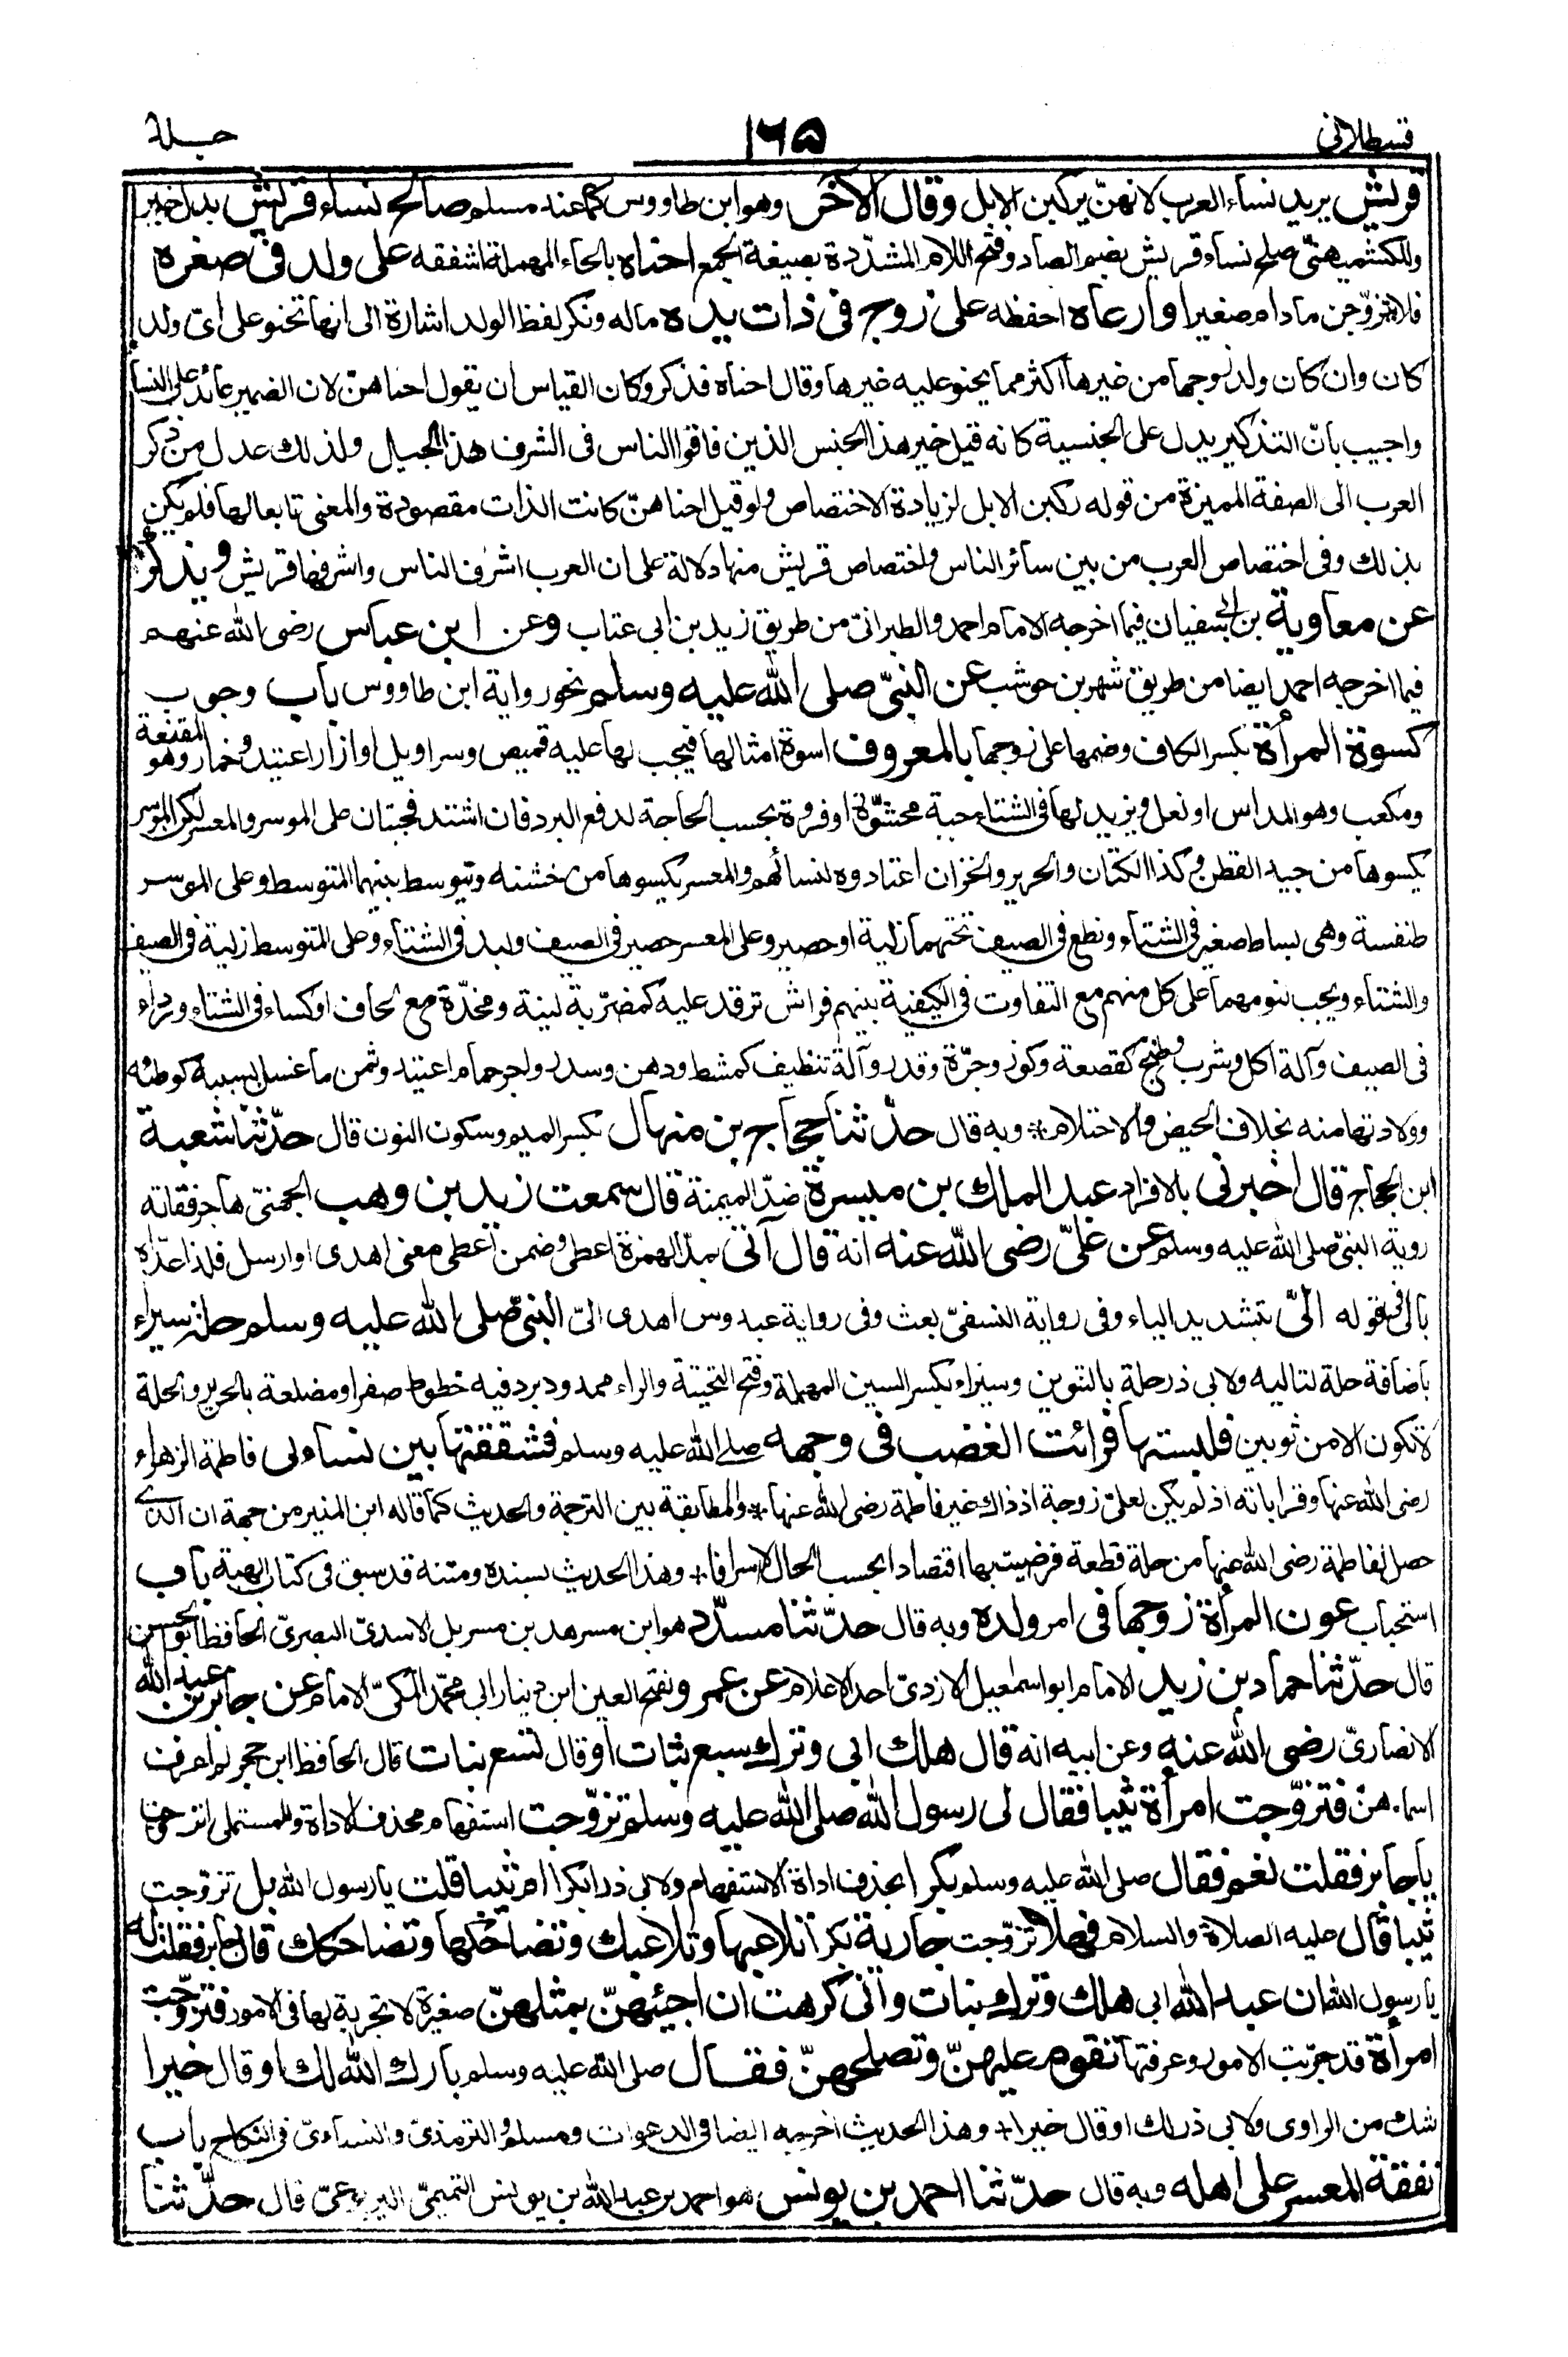 قسطلانی ۱۶۵ جلد
قریش یرید نساء العرب لانهنّ یرکبن الابل وقال الآخر وهو ابن طاووس کما عند مسلم صالح نساء قریش بدل خیر
وللکشمیهنیّ صلح نساء قریش بضم الصاد وفتح اللام المشدّدة بصیغة الجمع احناه بالحاء المهملة اشفقه علی ولد فی صغره
فلا تتزوّجن مادام صغیرا وارعاه احفظه علی زوج فی ذات یده ماله ونکر لفظ الولد اشارة الی انها تحنو علی ایّ ولد
کان وان کان ولد زوجها من غیرها اکثر مما یحنو علیه غیرها وقال احناه فذکر وکان القیاس ان یقول احناهنّ لان الضمیر عائد علی النساء
واجیب بانّ التذکیر یدل علی الجنسیة کانه قیل خیر هذا الجنس الذین فاقوا الناس فی الشرف هذا الجیل ولذلك عدل من ذکر
العرب الی الصفة الممیزة من قوله رکبن الابل لزیادة الاختصاص ولو قیل احناهنّ کانت الذات مقصودة والمعنی تابعا لها فلم یکن
بذلك وفی اختصاص العرب من بین سائر الناس واختصاص قریش منها دلالة علی ان العرب اشرف الناس واشرفها قریش ویذکر
عن معاویة بن ابی سفیان فیما اخرجه الامام احمد والطبرانیّ من طریق زید بن ابی عتاب وعن ابن عباس رضی الله عنهم
فیما اخرجه احمد ایضا من طریق شهر بن حوشب عن النبیّ صلی الله علیه وسلم نحو روایة ابن طاووس باب وجوب
کسوة المرأة بکسر الکاف وضمها علی زوجها بالمعروف اسوة امثالها فیجب لها علیه قمیص وسراویل او ازار اعتید وخمار وهو المقنعة
ومکعب وهو المداس او نعل ویزید لها فی الشتاء جبة محشوّة او فروة بحسب الحاجة لدفع البرد فان اشتد فجبتان علی الموسر والمعسر لکن الموسر
یکسوها من جید القطن وکذا الکتان والحریر والخز ان اعتادوه لنسائهم والمعسر یکسوها من خشنه ویتوسط بینهما المتوسط وعلی الموسر
طنفسة وهی بساط صغیر فی الشتاء ونطع فی الصیف تحتهما زلیة او حصیر وعلی المعسر حصیر فی الصیف ولبد فی الشتاء وعلی المتوسط زلیة فی الصیف
والشتاء ویجب لنومها علی کل منهم مع التفاوت فی الکیفیة بینهم فراش ترقد علیه کمضرّبة لینة ومخدّة مع لحاف او کساء فی الشتاء ورداء
فی الصیف وآلة اکل وشرب وطبخ کقصعة وکوز وجرّة وقدر وآلة تنظیف کمشط ودهن وسدر واجر حمام اعتید وثمن ما غسل بسببه کوطئه
وولادتها منه بخلاف الحیض والاحتلام * وبه قال حدّثنا حجاج بن منهال بکسر المیم وسکون النون قال حدّثنا شعبة
ابن الحجاج قال اخبرنی بالافراد عبد الملك بن میسرة ضدّ المیمنة قال سمعت زید بن وهب الجهنیّ هاجر ففاته
رویة النبیّ صلی الله علیه وسلم عن علیّ رضی الله عنه انه قال آتی بمدّ الهمزة اعطی وضمن اعطی معنی اهدی او ارسل فلذا عدّاه
بالی فی قوله الیّ بتشدید الیاء وفی روایة النسفیّ بعث وفی روایة عبدوس اهدی الیّ النبیّ صلی الله علیه وسلم حلة سیراء
باضافة حلة لتالیه ولابی ذر حلة بالتنوین وسیراء بکسر السین المهملة وفتح التحتیة والراء ممدود برد فیه خطوط صفر او مضلعة بالحریر والحلة
لا تکون الا من ثوبین فلبستها فرائت الغضب فی وجهه صلی الله علیه وسلم فشققتها بین نساءی فاطمة الزهراء
رضی الله عنها وقراباته اذ لم یکن لعلیّ زوجة اذ ذاك غیر فاطمة رضی الله عنها * والمطابقة بین الترجمة والحدیث کما قاله ابن المنیر من جهة ان الذی
حصل لفاطمة رضی الله عنها من حلة قطعة فرضیت بها اقتصادا بحسب الحال لا اسرافا * وهذا الحدیث بسنده ومتنه قد سبق فی کتاب الهبة باب
استحباب عون المرأة زوجها فی امر ولده وبه قال حدّثنا مسدّد هو ابن مسرهد بن مسربل الاسدیّ البصریّ الحافظ ابو الحسن
قال حدّثنا حماد بن زید الامام ابو اسمعیل الازدیّ احد الاعلام عن عمرو بفتح العین ابن دینار ابی محمّد المکیّ الامام عن جابر بن عبد الله
الانصاریّ رضی الله عنه وعن ابیه انه قال هلك ابی وترك سبع بنات او قال تسع بنات قال الحافظ ابن حجر لم اعرف
اسماءهنّ فتزوّجت امرأة ثیبا فقال لی رسول الله صلی الله علیه وسلم تزوّجت استفهام محذوف الاداة وللمستملی اتزوجت
یا جابر فقلت نعم فقال صلی الله علیه وسلم بکرا بحذف اداة الاستفهام ولابی ذر ابکرا ام ثیبا قلت یا رسول الله بل تزوّجت
ثیبا قال علیه الصلاة والسلام فهلا تزوّجت جاریة بکرا تلاعبها وتلاعبك وتضاحکها وتضاحکك قال جابر فقلت له
یا رسول الله ان عبد الله ابی هلك وترك بنات وانّی کرهت ان اجیئهنّ بمثلهنّ صغیرة لا تجربة لها فی الامور فتزوّجت
امرأة قد جرّبت الامور وعرفتها تقوم علیهنّ وتصلحهنّ فقال صلی الله علیه وسلم بارك الله لك او قال خیرا
شك من الراوی ولابی ذر لك او قال خیرا * وهذا الحدیث اخرجه ایضا فی الدعوات ومسلم والترمذیّ والنساءیّ فی النکاح باب
نفقة المعسر علی اهله وبه قال حدّثنا احمد بن یونس هو احمد بن عبد الله بن یونس التمیمیّ الیربوعیّ قال حدّثنا